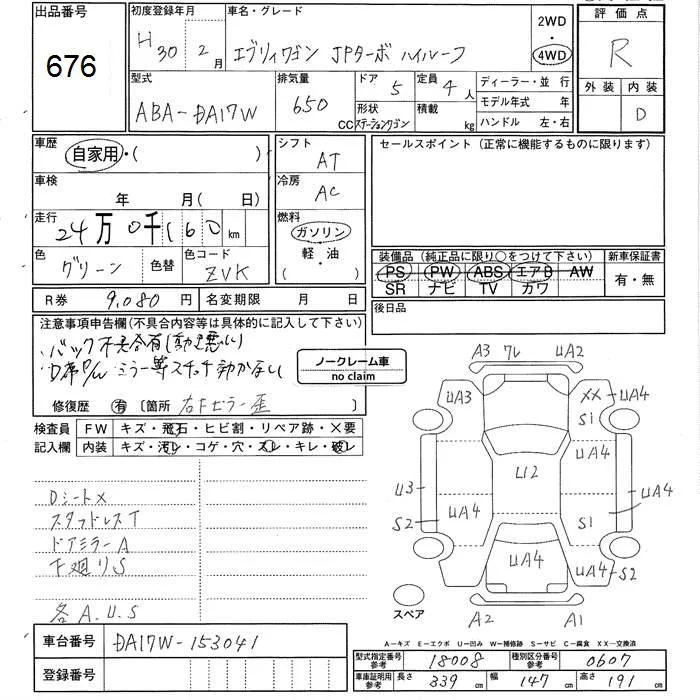 出品番号
676
初度登録年月
H 30 年 2 月
車名・グレード
エブリィワゴン JPターボ ハイルーフ
2WD
・
4WD
評価点
R
外装 内装
D
型式
ABA-DA17W
排気量
650
CC
ドア
5
定員
4人
形状
ステーションワゴン
積載
kg
ディーラー・並行
モデル年式 年
ハンドル 左・右
車歴
自家用・( )
車検
年 月( 日)
走行
24万0千160km
色
グリーン
色替
色コード
ZVK
シフト
AT
冷房
AC
燃料
ガソリン
軽・油
( )
セールスポイント (正常に機能するものに限ります)
装備品 (純正品に限り○をつけて下さい)
PS PW ABS エアB AW
SR ナビ TV カワ
新車保証書
有・無
後日品
R券 9,080円
名変期限 月 日
注意事項申告欄(不具合内容等は具体的に記入して下さい)
ノークレーム車
no claim
修復歴 有 [箇所 右Fピラー歪 ]
検査員
記入欄
FW キズ・飛石・ヒビ割・リペア跡・×要
内装 キズ・汚レ・コゲ・穴・スレ・キレ・破レ
Dシート×
スタッドレスT
ドアミラーA
下廻りS
各A.U.S
A3 ワレ UA2
UA3
XX UA4
S1
UA4
U2
U3
UA4
S2
UA4
UA4
S1
UA4
UA4
S2
スペア
A2 A1
A-キズ E-エクボ U-凹み W-補修跡 S-サビ C-腐食 XX-交換済
車台番号 DA17W-153041
登録番号
型式指定番号
参考
18008
種別区分番号
参考
0607
車庫証明用
参考
長さ 339 cm 幅 147 cm 高さ 191 cm